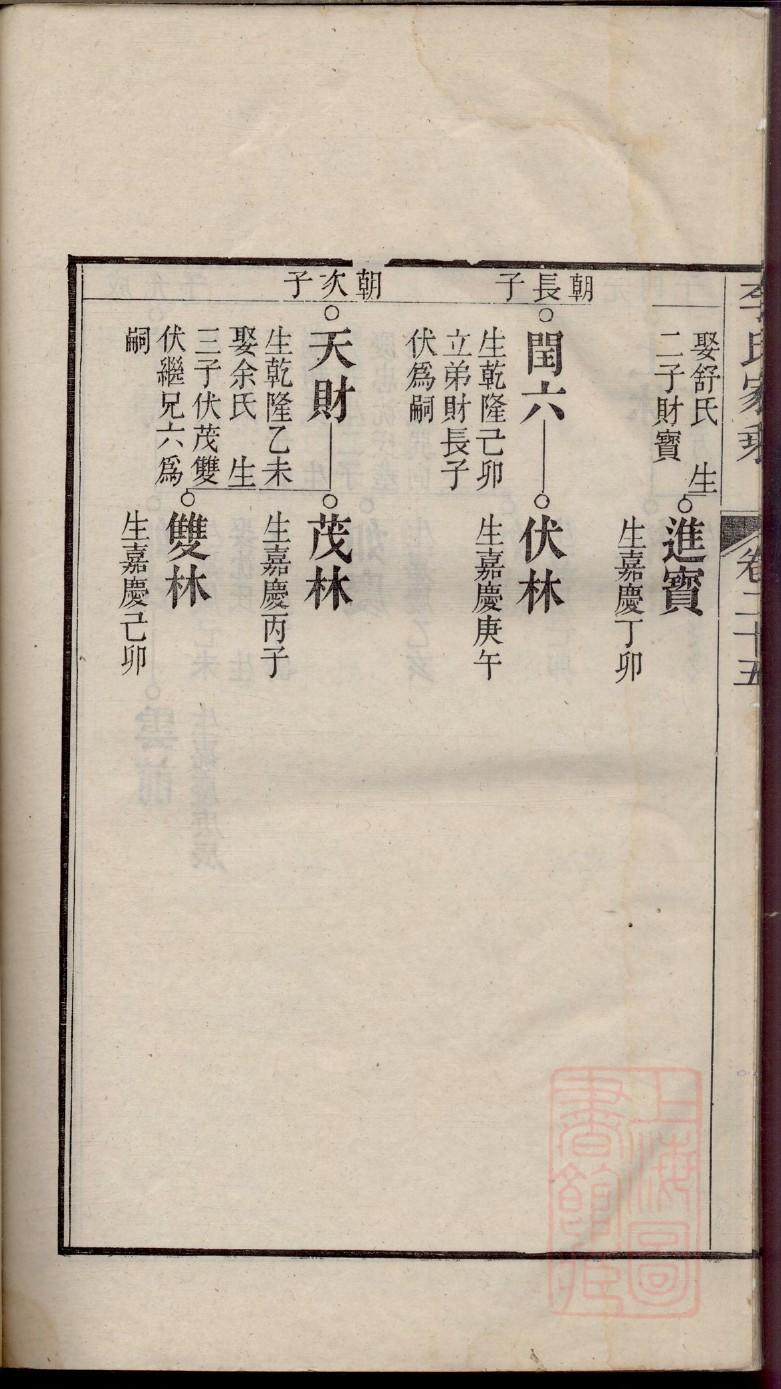 李氏家乘
卷二十五
娶舒氏 生
二子財寶
進寶
生嘉慶丁卯
朝長子
閏六
生乾隆己卯
立弟財長子
伏爲嗣
伏林
生嘉慶庚午
朝次子
天財
生乾隆乙未
娶余氏 生
三子伏茂雙
伏繼兄六爲
嗣
茂林
生嘉慶丙子
雙林
生嘉慶己卯
上海圖
書館藏